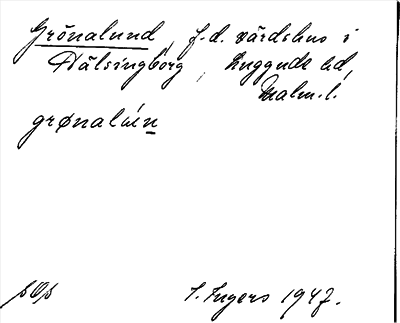 Grönalund, f.d. värdshus i
Hälsingborg, Luggude hd,
Malm.l.
grønalún
sOs
I. Ingers 1947.